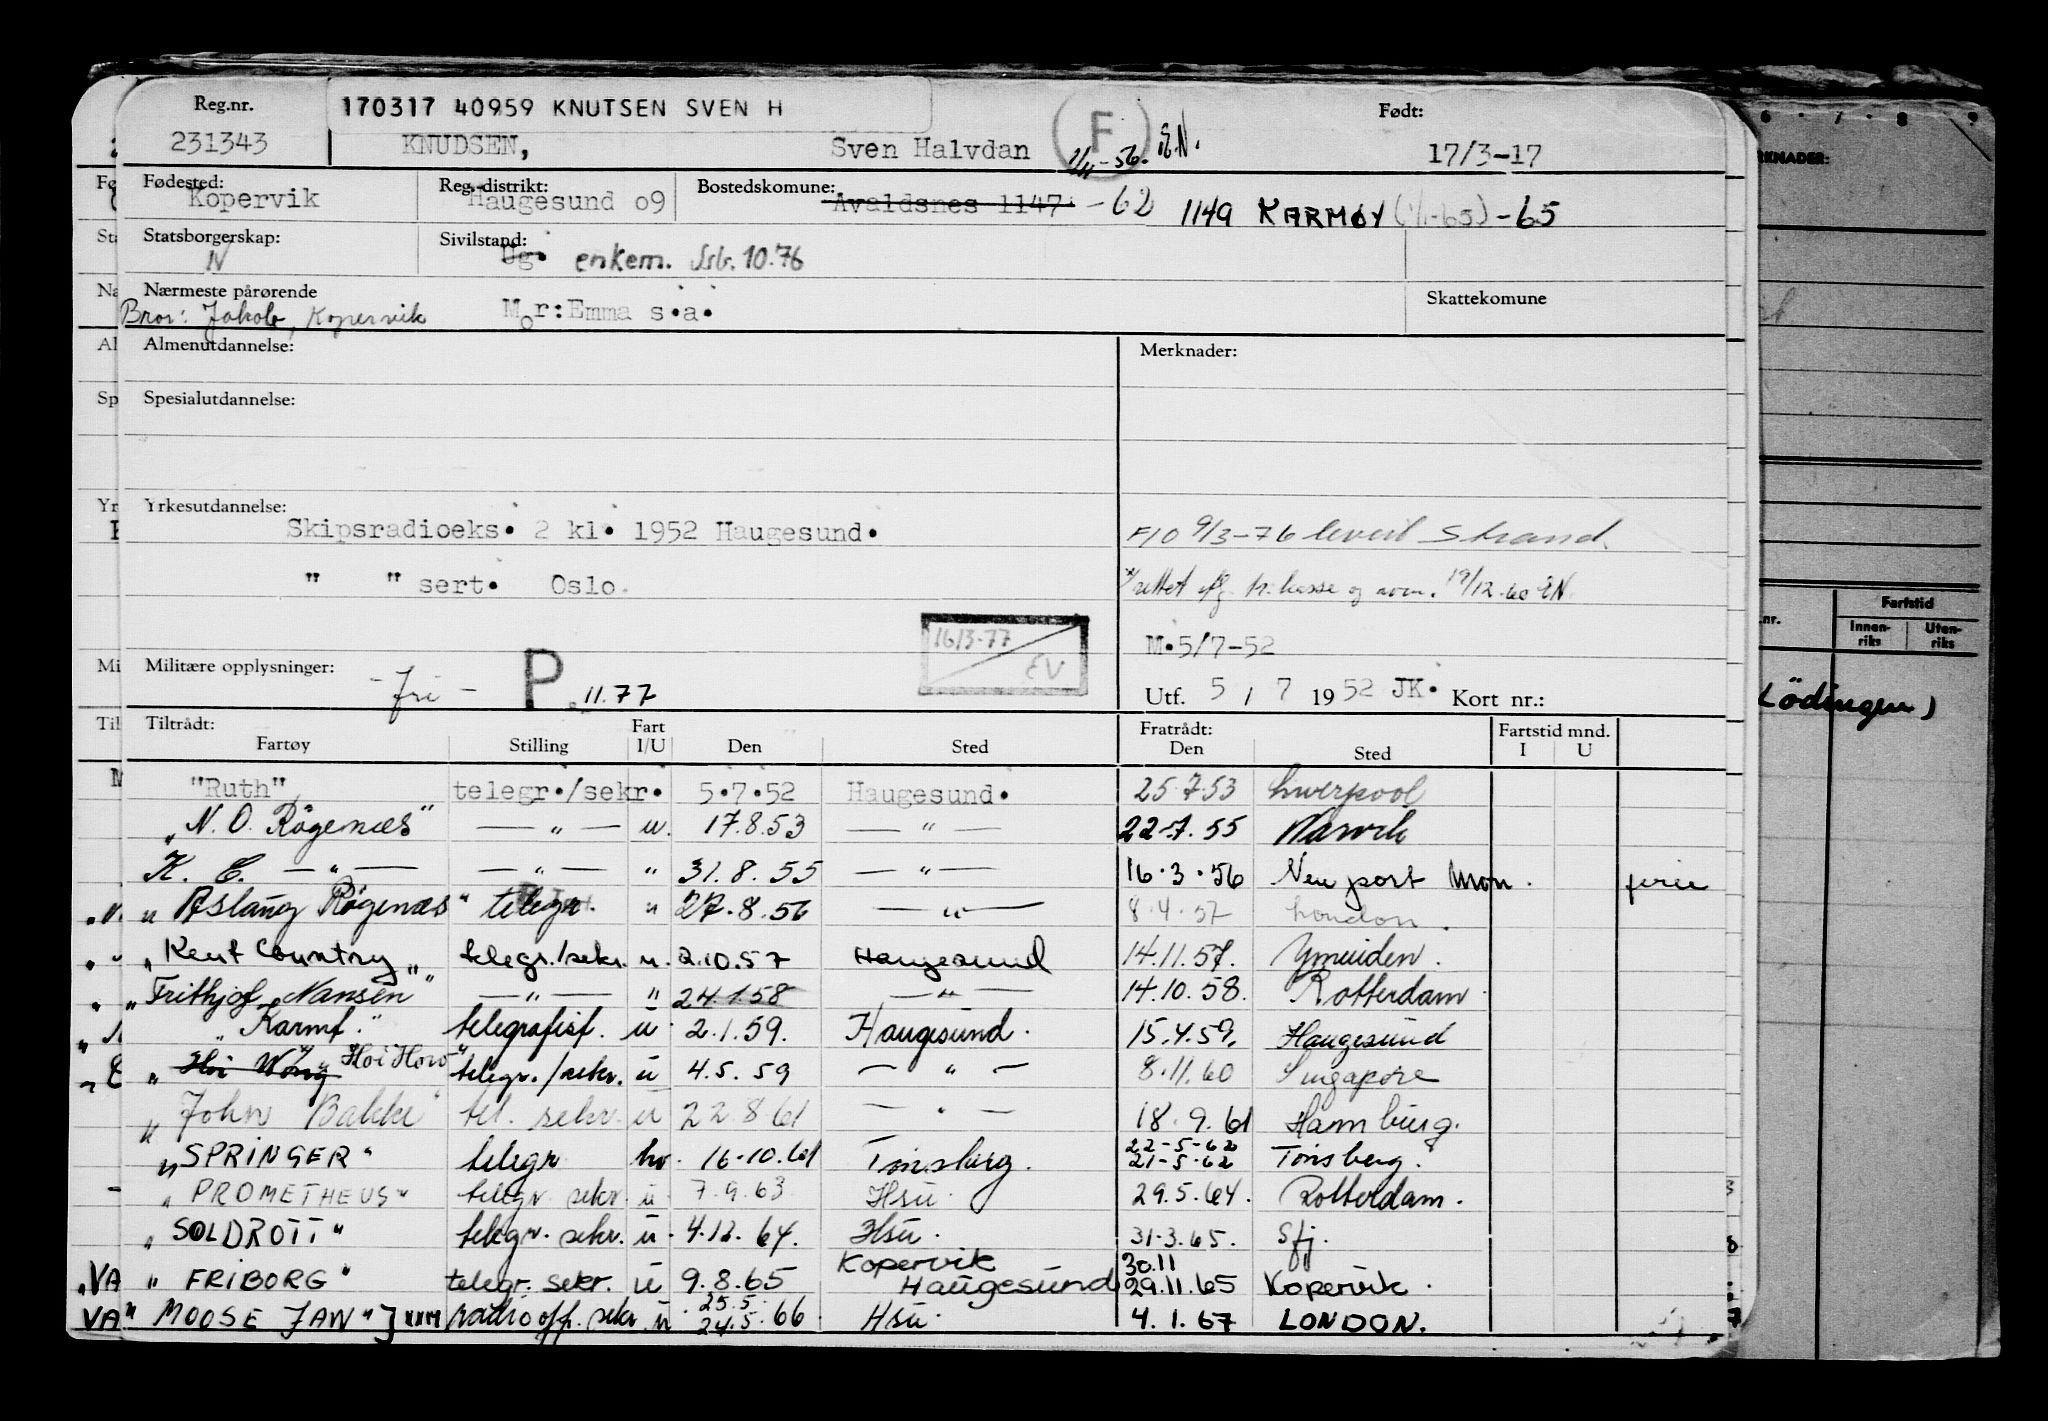 Reg.nr. 170317 40959 KNUTSEN SVEN H F Født:
231343 KNUDSEN, Sven Halvdan 1/11-56. E.N. 17/3-17
Fødested: Reg.distrikt: Bostedskommune:
Kopervik Haugesund o9 Avaldsnes 1147 -62 1149 KARMØY (1/1-65) -65
Statsborgerskap: Sivilstand:
N Ug. enkem. 10.76
Nærmeste pårørende Skattekomune
Bror: Jakob, Kopervik Mor: Emma s.a.
Almenutdannelse: Merknader:
Spesialutdannelse:
Yrkesutdannelse:
Skipsradioeks. 2 kl. 1952 Haugesund. F10 9/3-76 Strand.
" " sert. Oslo. rettet 19/12.60 EN
16/3-77 EV M.5/7-52
Militære opplysninger: -fri- P 11.77 Utf. 5 / 7 1952 JK. Kort nr.:
Tiltrådt: Fart Fratrådt: Fartstid mnd.
Fartøy Stilling I/U Den Sted Den Sted I U
"Ruth" telegr./sekr. 5.7.52 Haugesund. 25.7.53 Liverpool
"N. O. Rögenæs" — " — u. 17.8.53 — " — 22-7.55 Narvik
K. C. — " — — " — " 31.8.55 — " — 16.3.56 Newport Mon. ferie
" Aslaug Rögenæs" telegr. " 27.8.56 — " — 8.4.57 London.
"Kent Country" telegr./sekr. u. 2.10.57 Haugesund 14.11.57. Ymuiden.
"Frithjof Nansen" — " — " 24.1.58 — " — 14.10.58. Rotterdam.
"Karmt." telegrafist. u. 2.1.59. Haugesund. 15.4.59. Haugesund
" Hoi Wong Hoi How" telegr./sekr. u 4.5.59 — " — 8.11.60 Singapore
"John Bakke" tel. sekr. u 22.8.61 — " — 18.9.61 Hamburg.
"SPRINGER" telegr hv. 16.10.61 Tønsberg. 22-5-62 21-5-62 Tønsberg.
"PROMETHEUS" telegr. sekr. u 7.9.63 Hsu. 29.5.64. Rotterdam.
"SOLDROTT" telegr. sekr. u. 4.12.64. Hsu. 31.3.65. Sfj.
"FRIBORG" telegr. sekr. u 9.8.65 Kopervik Haugesund 30.11 29.11.65 Kopervik.
"MOOSE JAW" radiooff. sekr. u 25.5. 24.5.66 Hsu. 4.1.67 LONDON.
6 . 7 . 8 9
KNADER:
nr. Fartstid
Innen-riks Uten-riks
Lödingen)